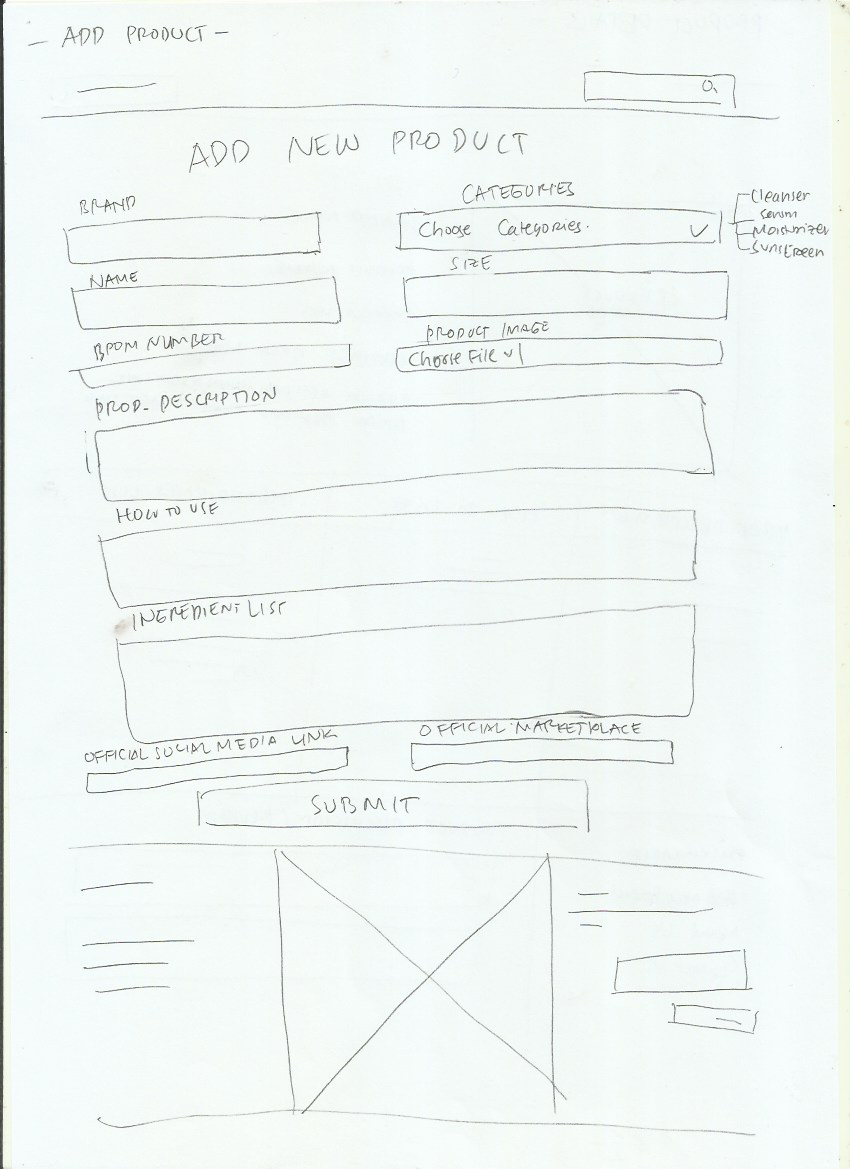 - ADD PRODUCT -
ADD NEW PRODUCT
BRAND
CATEGORIES
Choose Categories.
Cleanser
Serum
Moisturizer
Sunscreen
NAME
SIZE
BPOM NUMBER
PRODUCT IMAGE
Choose File
PROD. DESCRIPTION
HOW TO USE
INGREDIENT LIST
OFFICIAL SOCIAL MEDIA LINK
OFFICIAL MARKETPLACE
SUBMIT